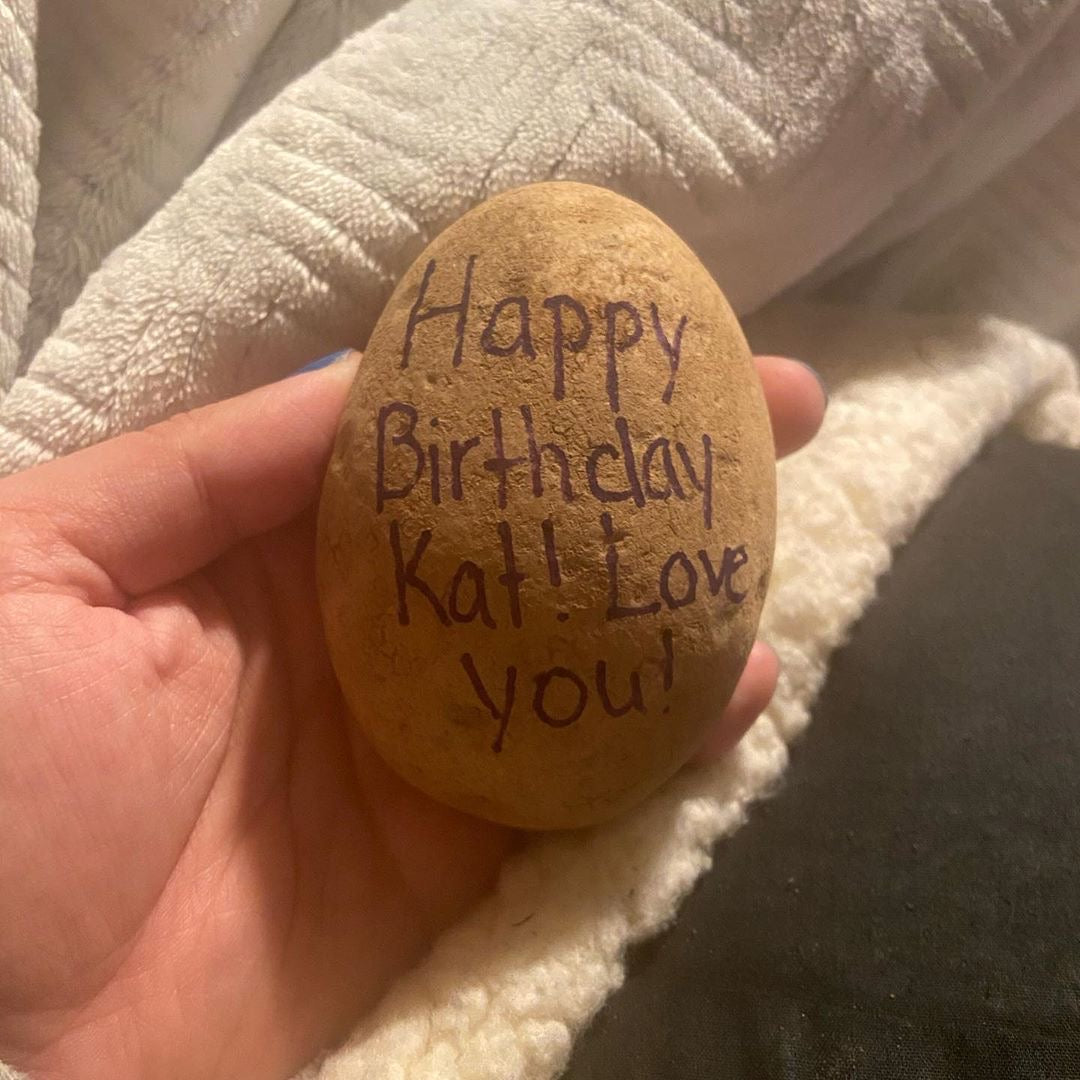 Happy
Birthday
Kat! Love
you!